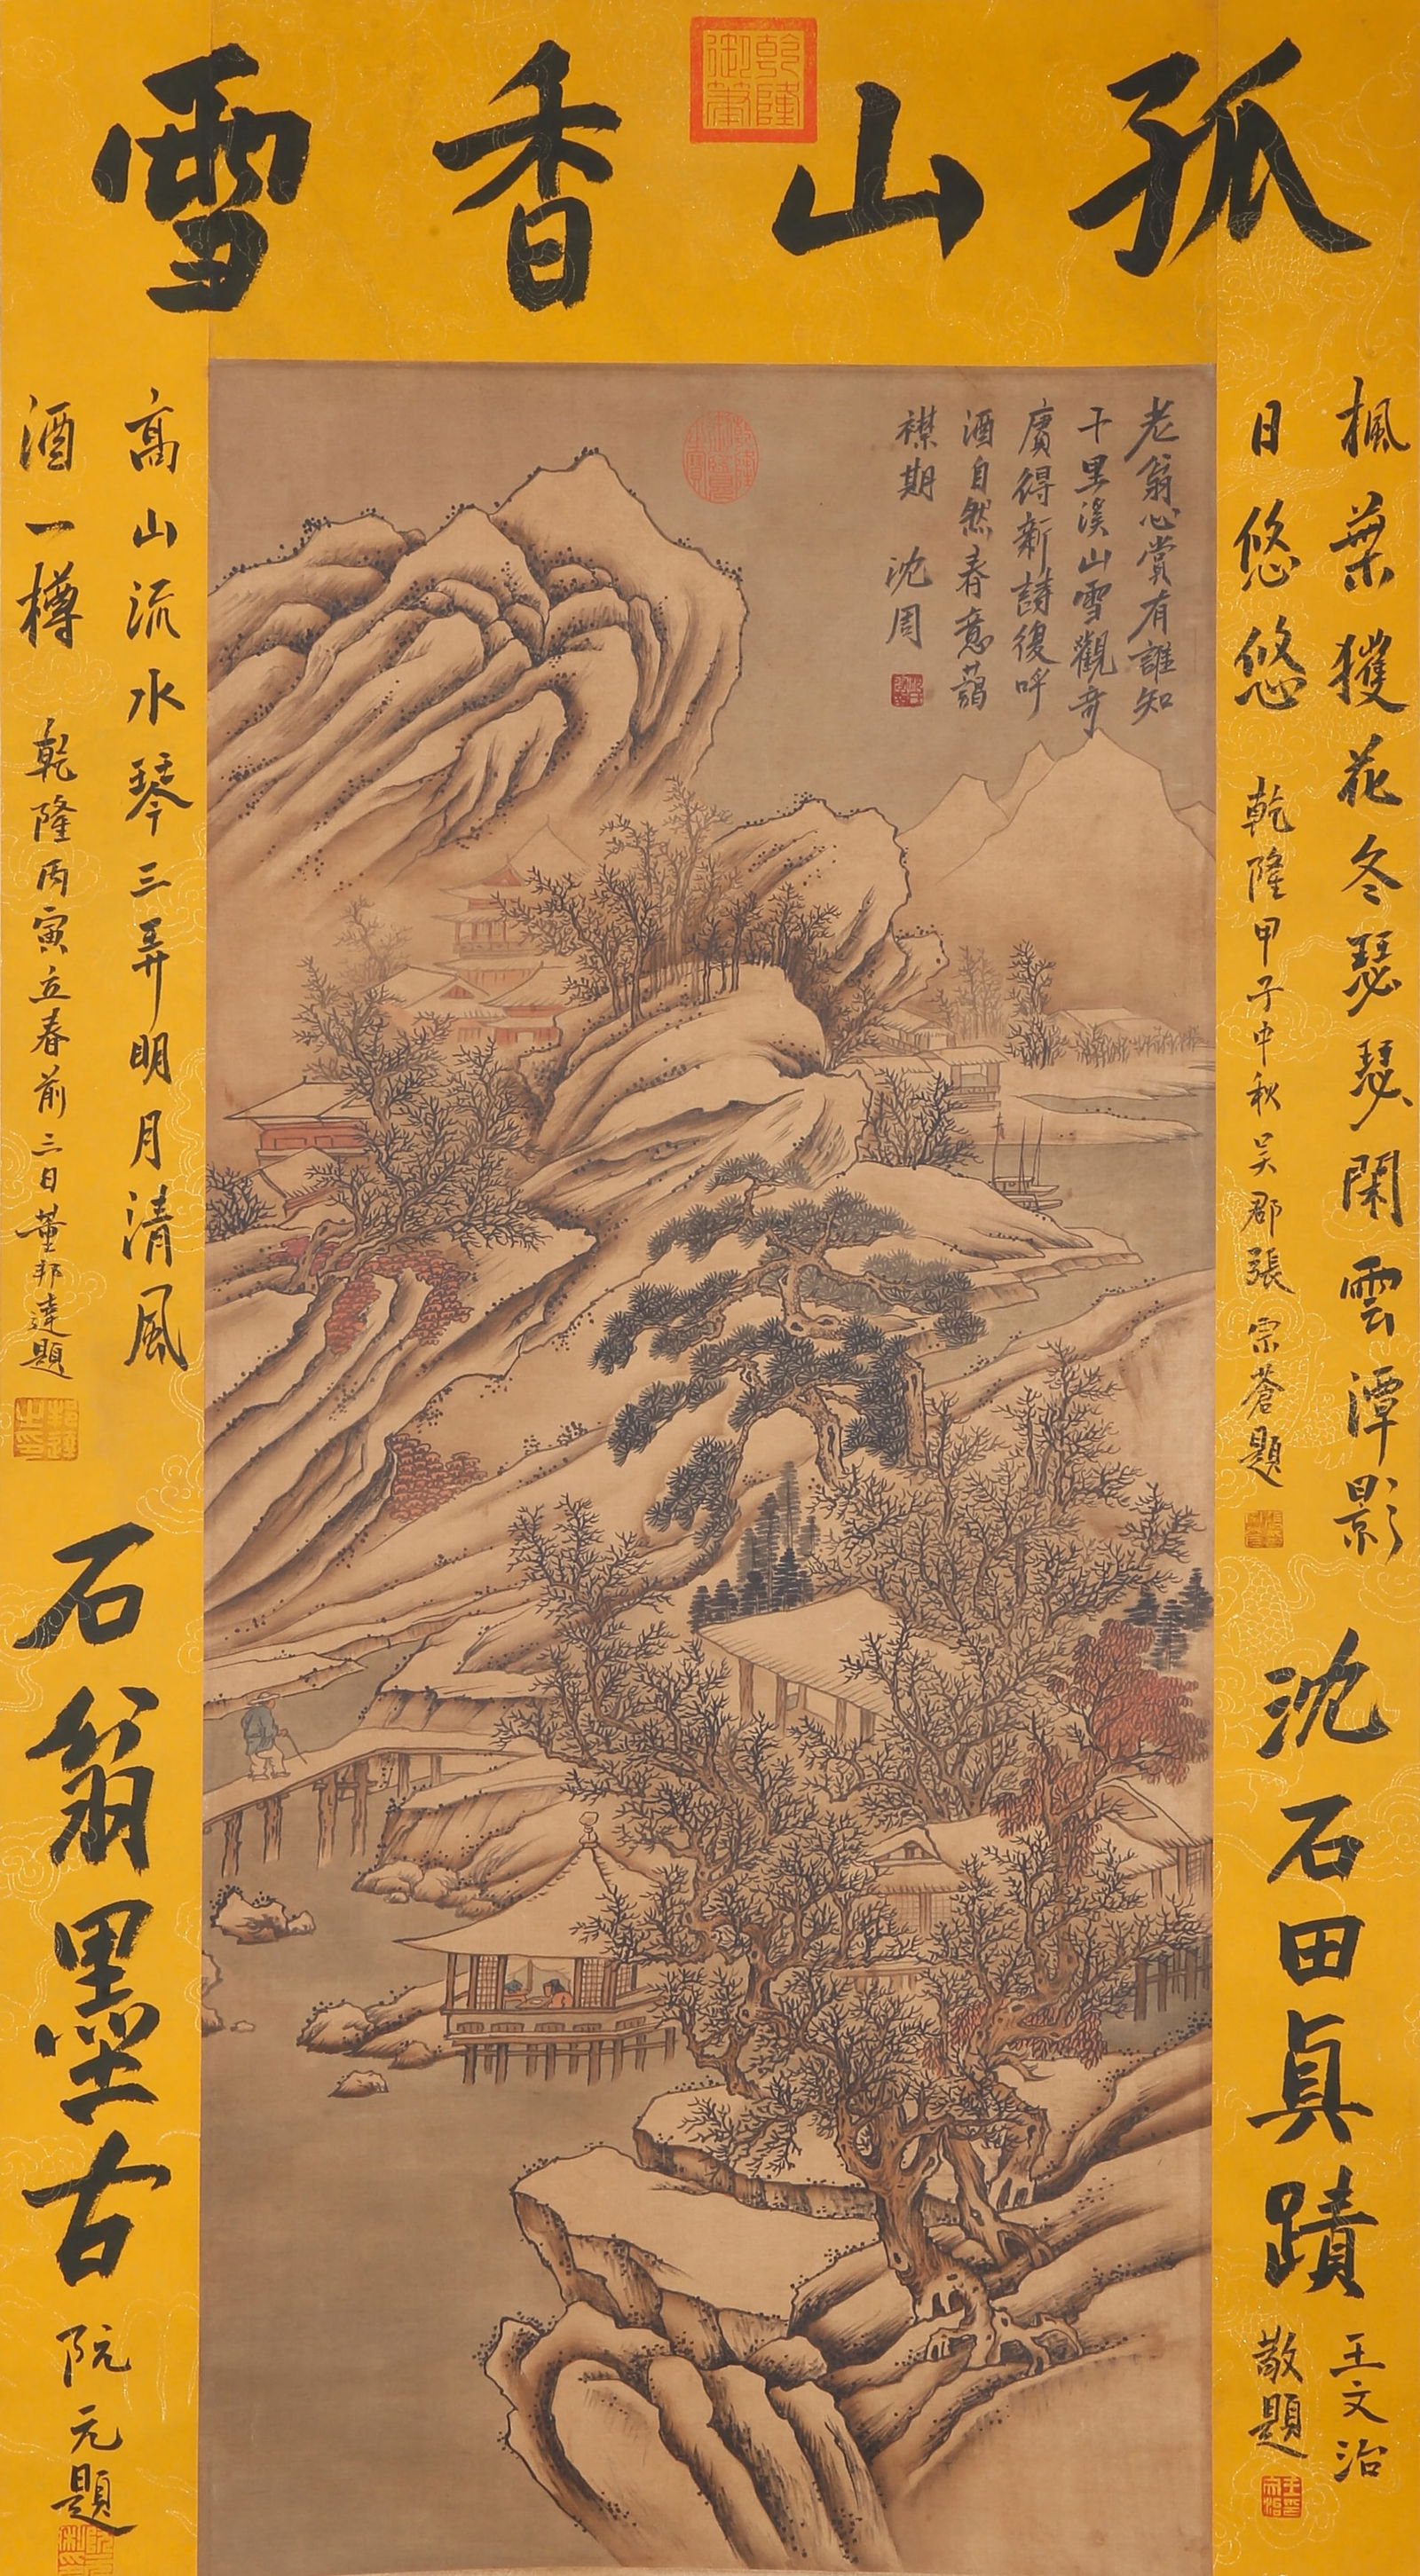 孤山香雪
乾隆御筆
楓葉獲花冬瑟瑟閑雲潭影
日悠悠 乾隆甲子中秋吴郡張宗蒼題
沈石田真蹟 王文治
敬題
王文治
老翁心賞有誰知
千里溪山雪觀奇
賡得新詩復呼
酒自然春意藹
襟期 沈周
高山流水琴三弄明月清風
酒一樽 乾隆丙寅立春前三日董邦達題
邦達之印
石翁墨古 阮元題